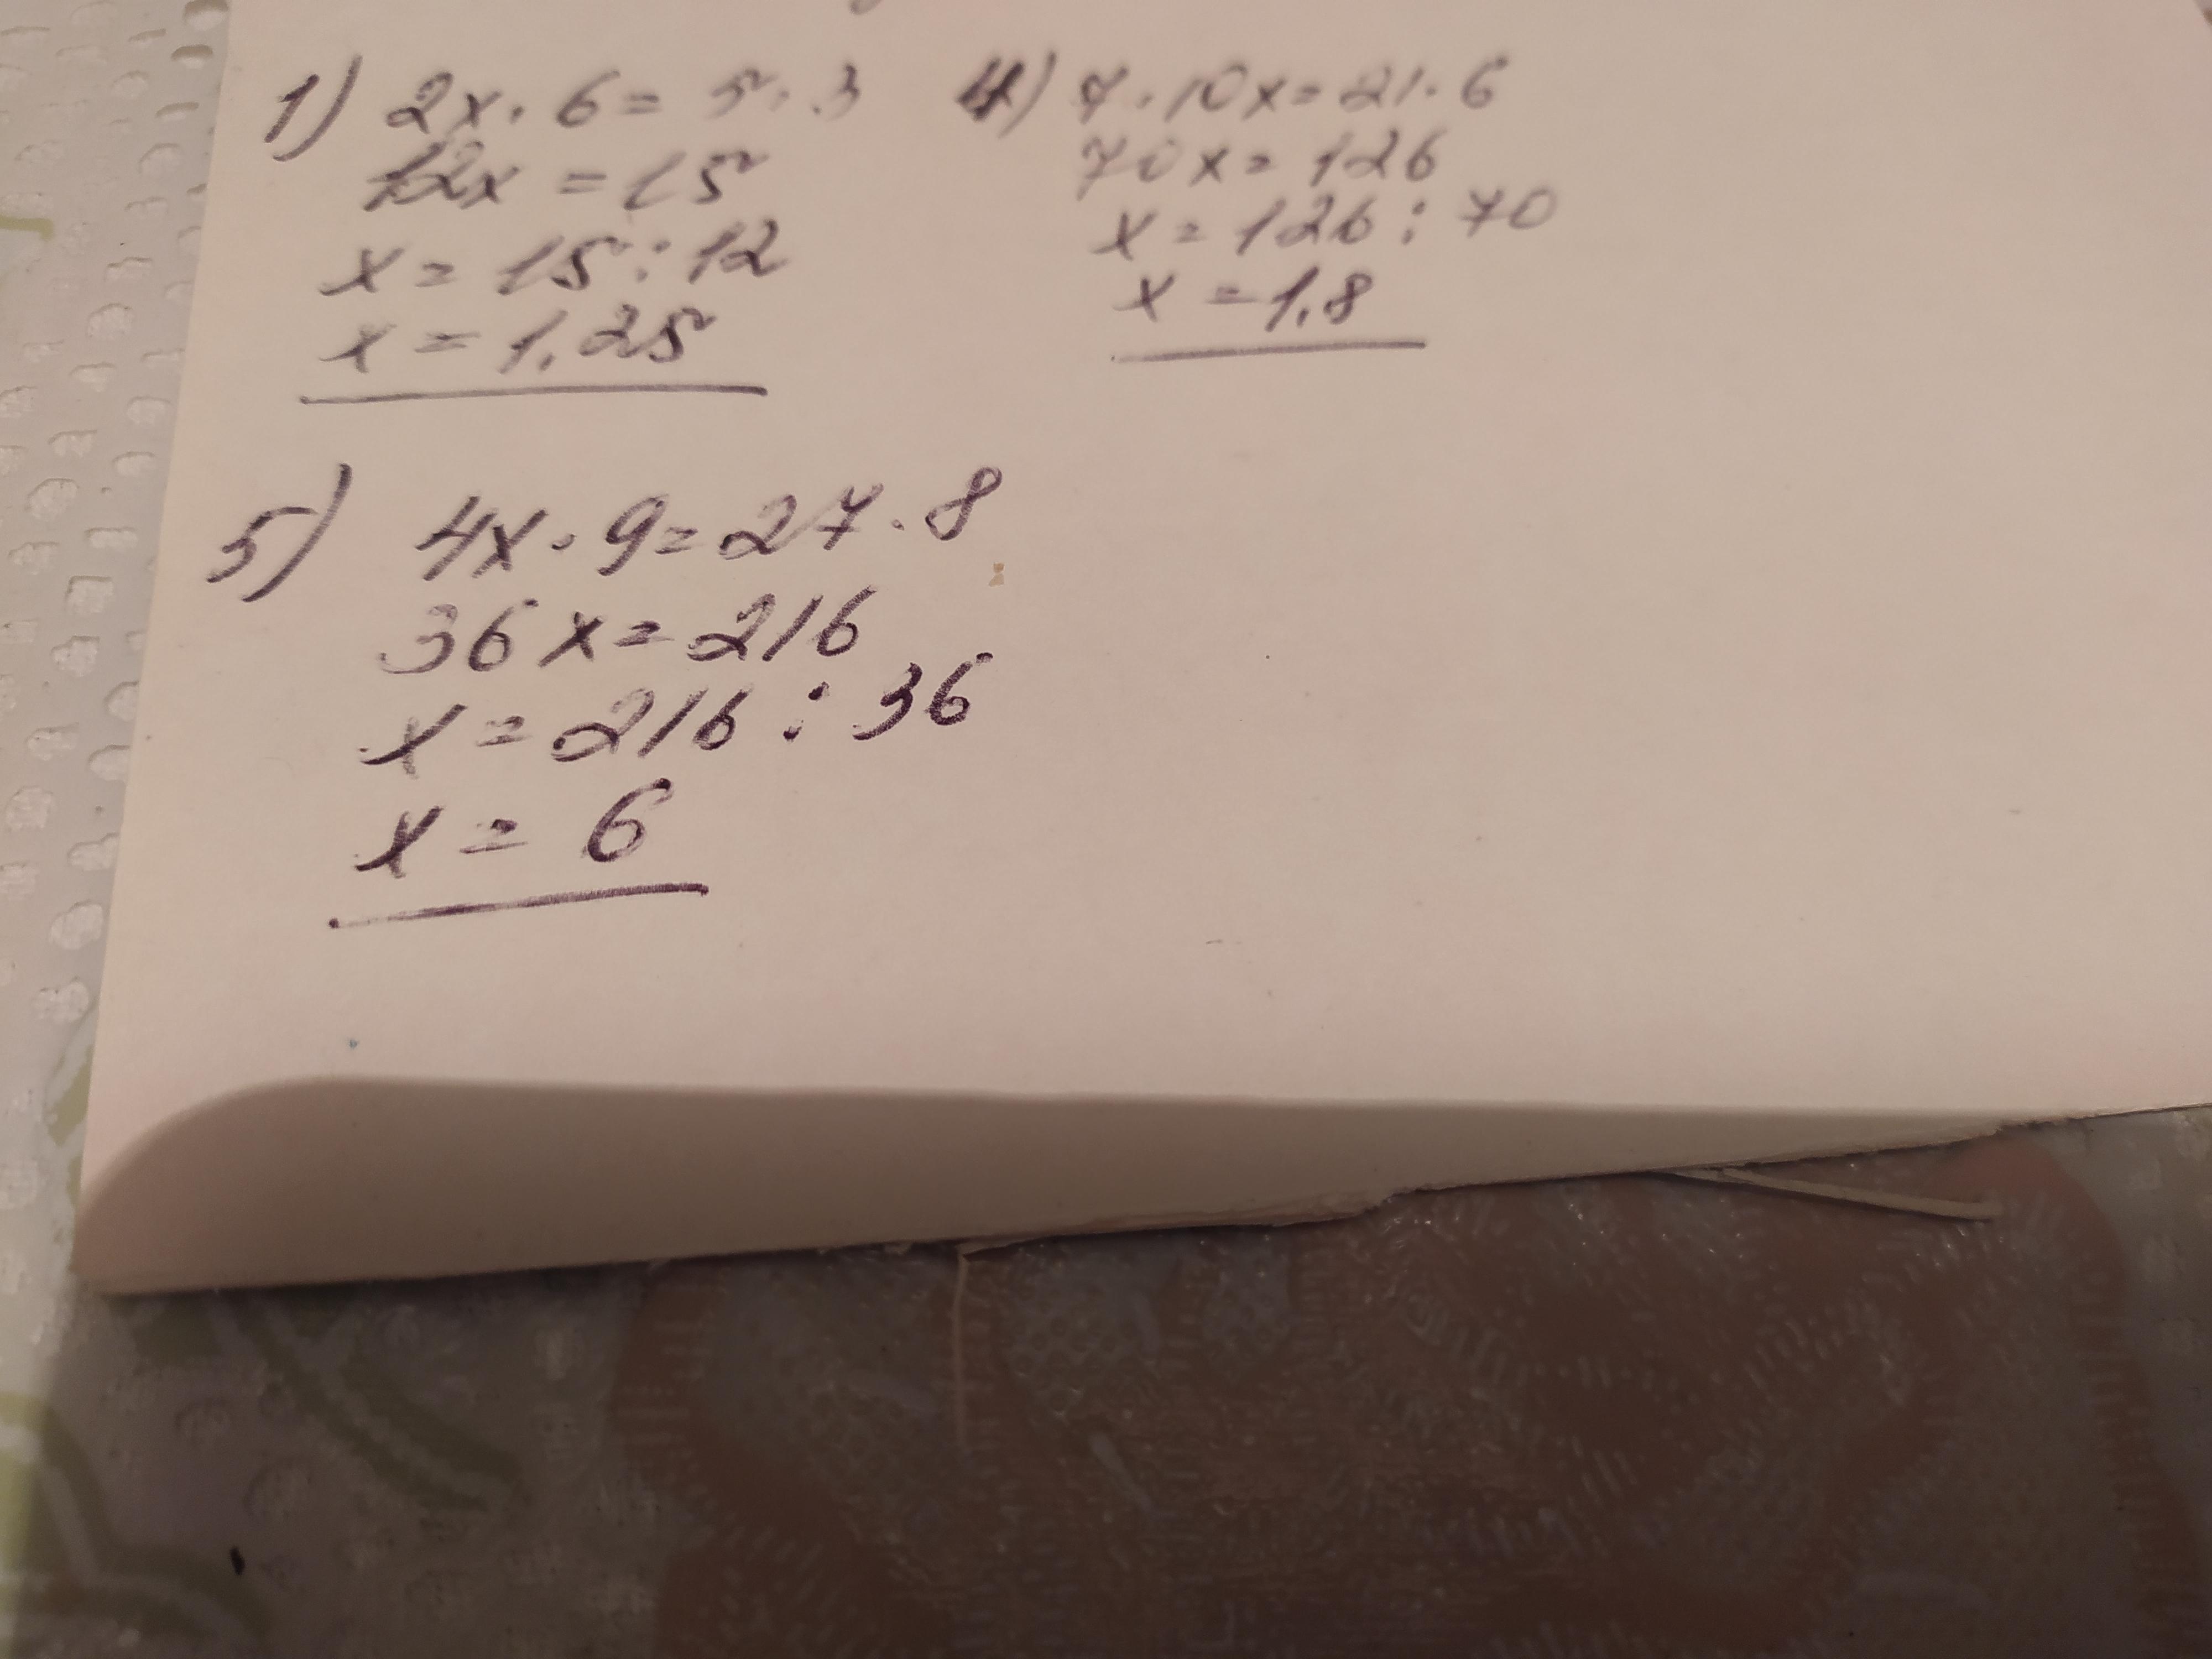 1) 2x · 6 = 5 · 3
12x = 15
x = 15 : 12
x = 1,25
4) 7 · 10x = 21 · 6
70x = 126
x = 126 : 70
x = 1,8
5) 4x · 9 = 27 · 8
36x = 216
x = 216 : 36
x = 6